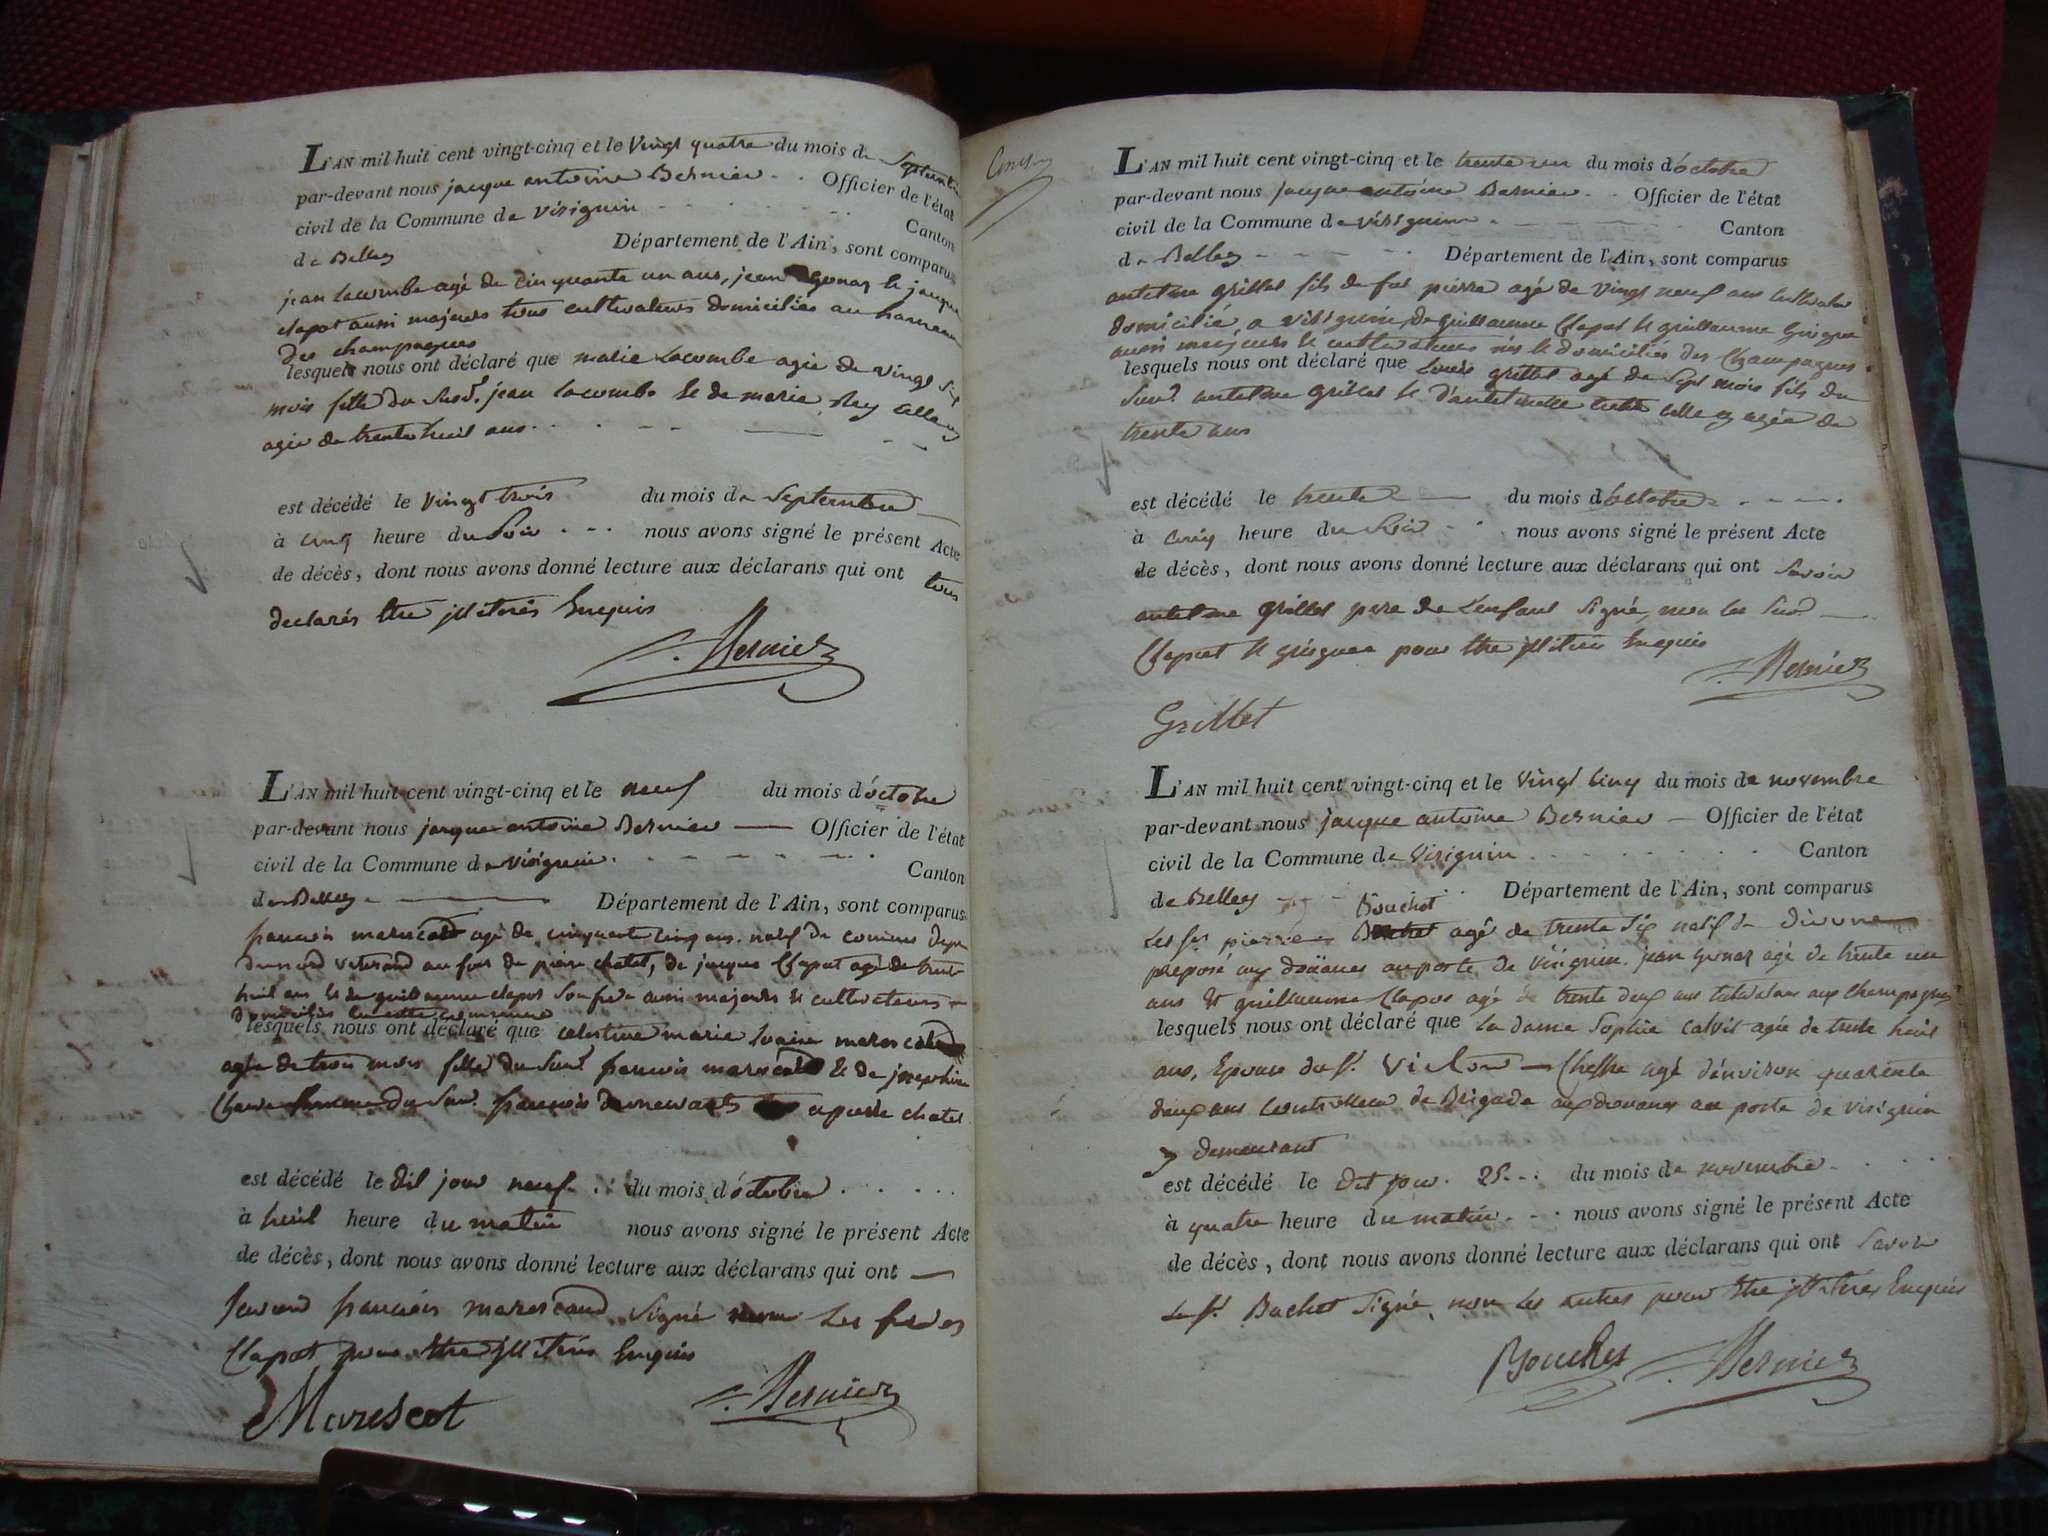 L'AN mil huit cent vingt-cinq et le Vingt quatre du mois de Septembre
par-devant nous jacque antoine Bernier Officier de l'état
civil de la Commune de Virignin Canton
de Belley Département de l'Ain, sont comparus
jean Lacombe agé de Cinquante un ans, jean gonaz & jacque
clapot aussi majeurs tous cultivateurs domiciliés au hameau
des champagnes
lesquels nous ont déclaré que marie Lacombe agée de vingt six
mois fille du Susd. jean Lacombe & de marie
agée de trente huit ans
est décédé le Vingt trois du mois de Septembre
à cinq heure du Soir nous avons signé le présent Acte
de décès, dont nous avons donné lecture aux déclarans qui ont tous
declarés être illiterés Enquis
Bernier
L'AN mil huit cent vingt-cinq et le neuf du mois d'octobre
par-devant nous jacque antoine Bernier Officier de l'état
civil de la Commune de Virignin Canton
de Belley Département de l'Ain, sont comparus
françois marescot agé de cinquante cinq ans natif de
au fort de pierre chatel, de jacque Clapot agé de trente
huit ans & de guillaume clapot Son frere aussi majeurs & cultivateurs
domiciliés en cette commune
lesquels nous ont déclaré que celestine marie Louise
agée de trois mois fille du Susd. françois & de josephine
du Susd. françois a pierre chatel
est décédé le dit jour neuf du mois d'octobre
à huit heure du matin nous avons signé le présent Acte
de décès, dont nous avons donné lecture aux déclarans qui ont
Savoir françois Signé non Les freres
Clapot pour être illiterés Enquis
Marescot Bernier
L'AN mil huit cent vingt-cinq et le trente un du mois d'octobre
par-devant nous jacque antoine Bernier Officier de l'état
civil de la Commune de Virignin Canton
de Belley Département de l'Ain, sont comparus
antelme grillet fils de feu pierre agé de Vingt neuf ans Cultivateur
domicilié a Virignin, de guillaume Clapot & guillaume
aussi majeurs & cultivateurs nés & domiciliés des Champagnes
lesquels nous ont déclaré que Louis grillet agé de Sept mois fils du
Susd. antelme grillet & d'antelmette agée de
trente ans
est décédé le trente du mois d'octobre
à cinq heure du Soir nous avons signé le présent Acte
de décès, dont nous avons donné lecture aux déclarans qui ont Savoir
antelme grillet pere de L'enfant Signé, non les Susd.
Clapot & pour être illiterés Enquis
Bernier
Grillet
L'AN mil huit cent vingt-cinq et le Vingt Cinq du mois de novembre
par-devant nous jacque antoine Bernier Officier de l'état
civil de la Commune de Virignin Canton
de Belley Département de l'Ain, sont comparus
Bouchet
Les Srs pierre agé de trente Six natif de divonne
préposé aux doüanes au poste de Virignin. jean gonaz agé de trente un
ans & guillaume Clapot agé de trente deux ans Cultivateurs aux Champagnes
lesquels nous ont déclaré que La dame Sophie Calvis agée de trente huit
ans, Epouse du Sr. Victor agé d'environ quarente
deux ans de Brigade aux douanes au poste de Virignin
y demeurant
est décédé le dit jour 25 du mois de novembre
à quatre heure du matin nous avons signé le présent Acte
de décès, dont nous avons donné lecture aux déclarans qui ont Savoir
Le Sr. Buchet Signé, non Les autres pour être illiterés Enquis
Bouchet Bernier